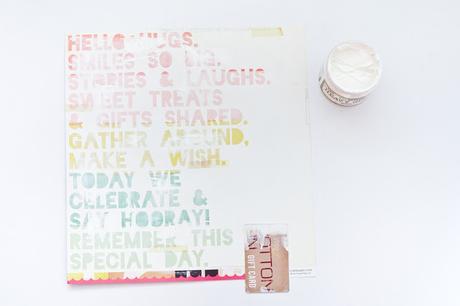 HELLO HUGS.
SMILES SO BIG.
STORIES & LAUGHS.
SWEET TREATS
& GIFTS SHARED.
GATHER AROUND,
MAKE A WISH.
TODAY WE
CELEBRATE &
SAY HOORAY!
REMEMBER THIS
SPECIAL DAY.
GIFT CARD